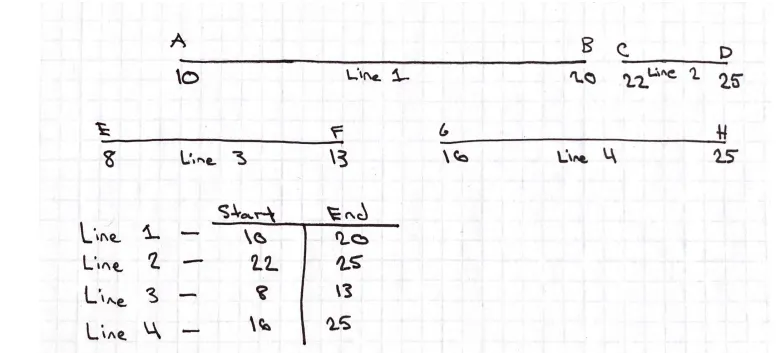 A B C D
10 Line 1 20 22 Line 2 25
E F G H
8 Line 3 13 16 Line 4 25
Start End
Line 1 - 10 20
Line 2 - 22 25
Line 3 - 8 13
Line 4 - 16 25